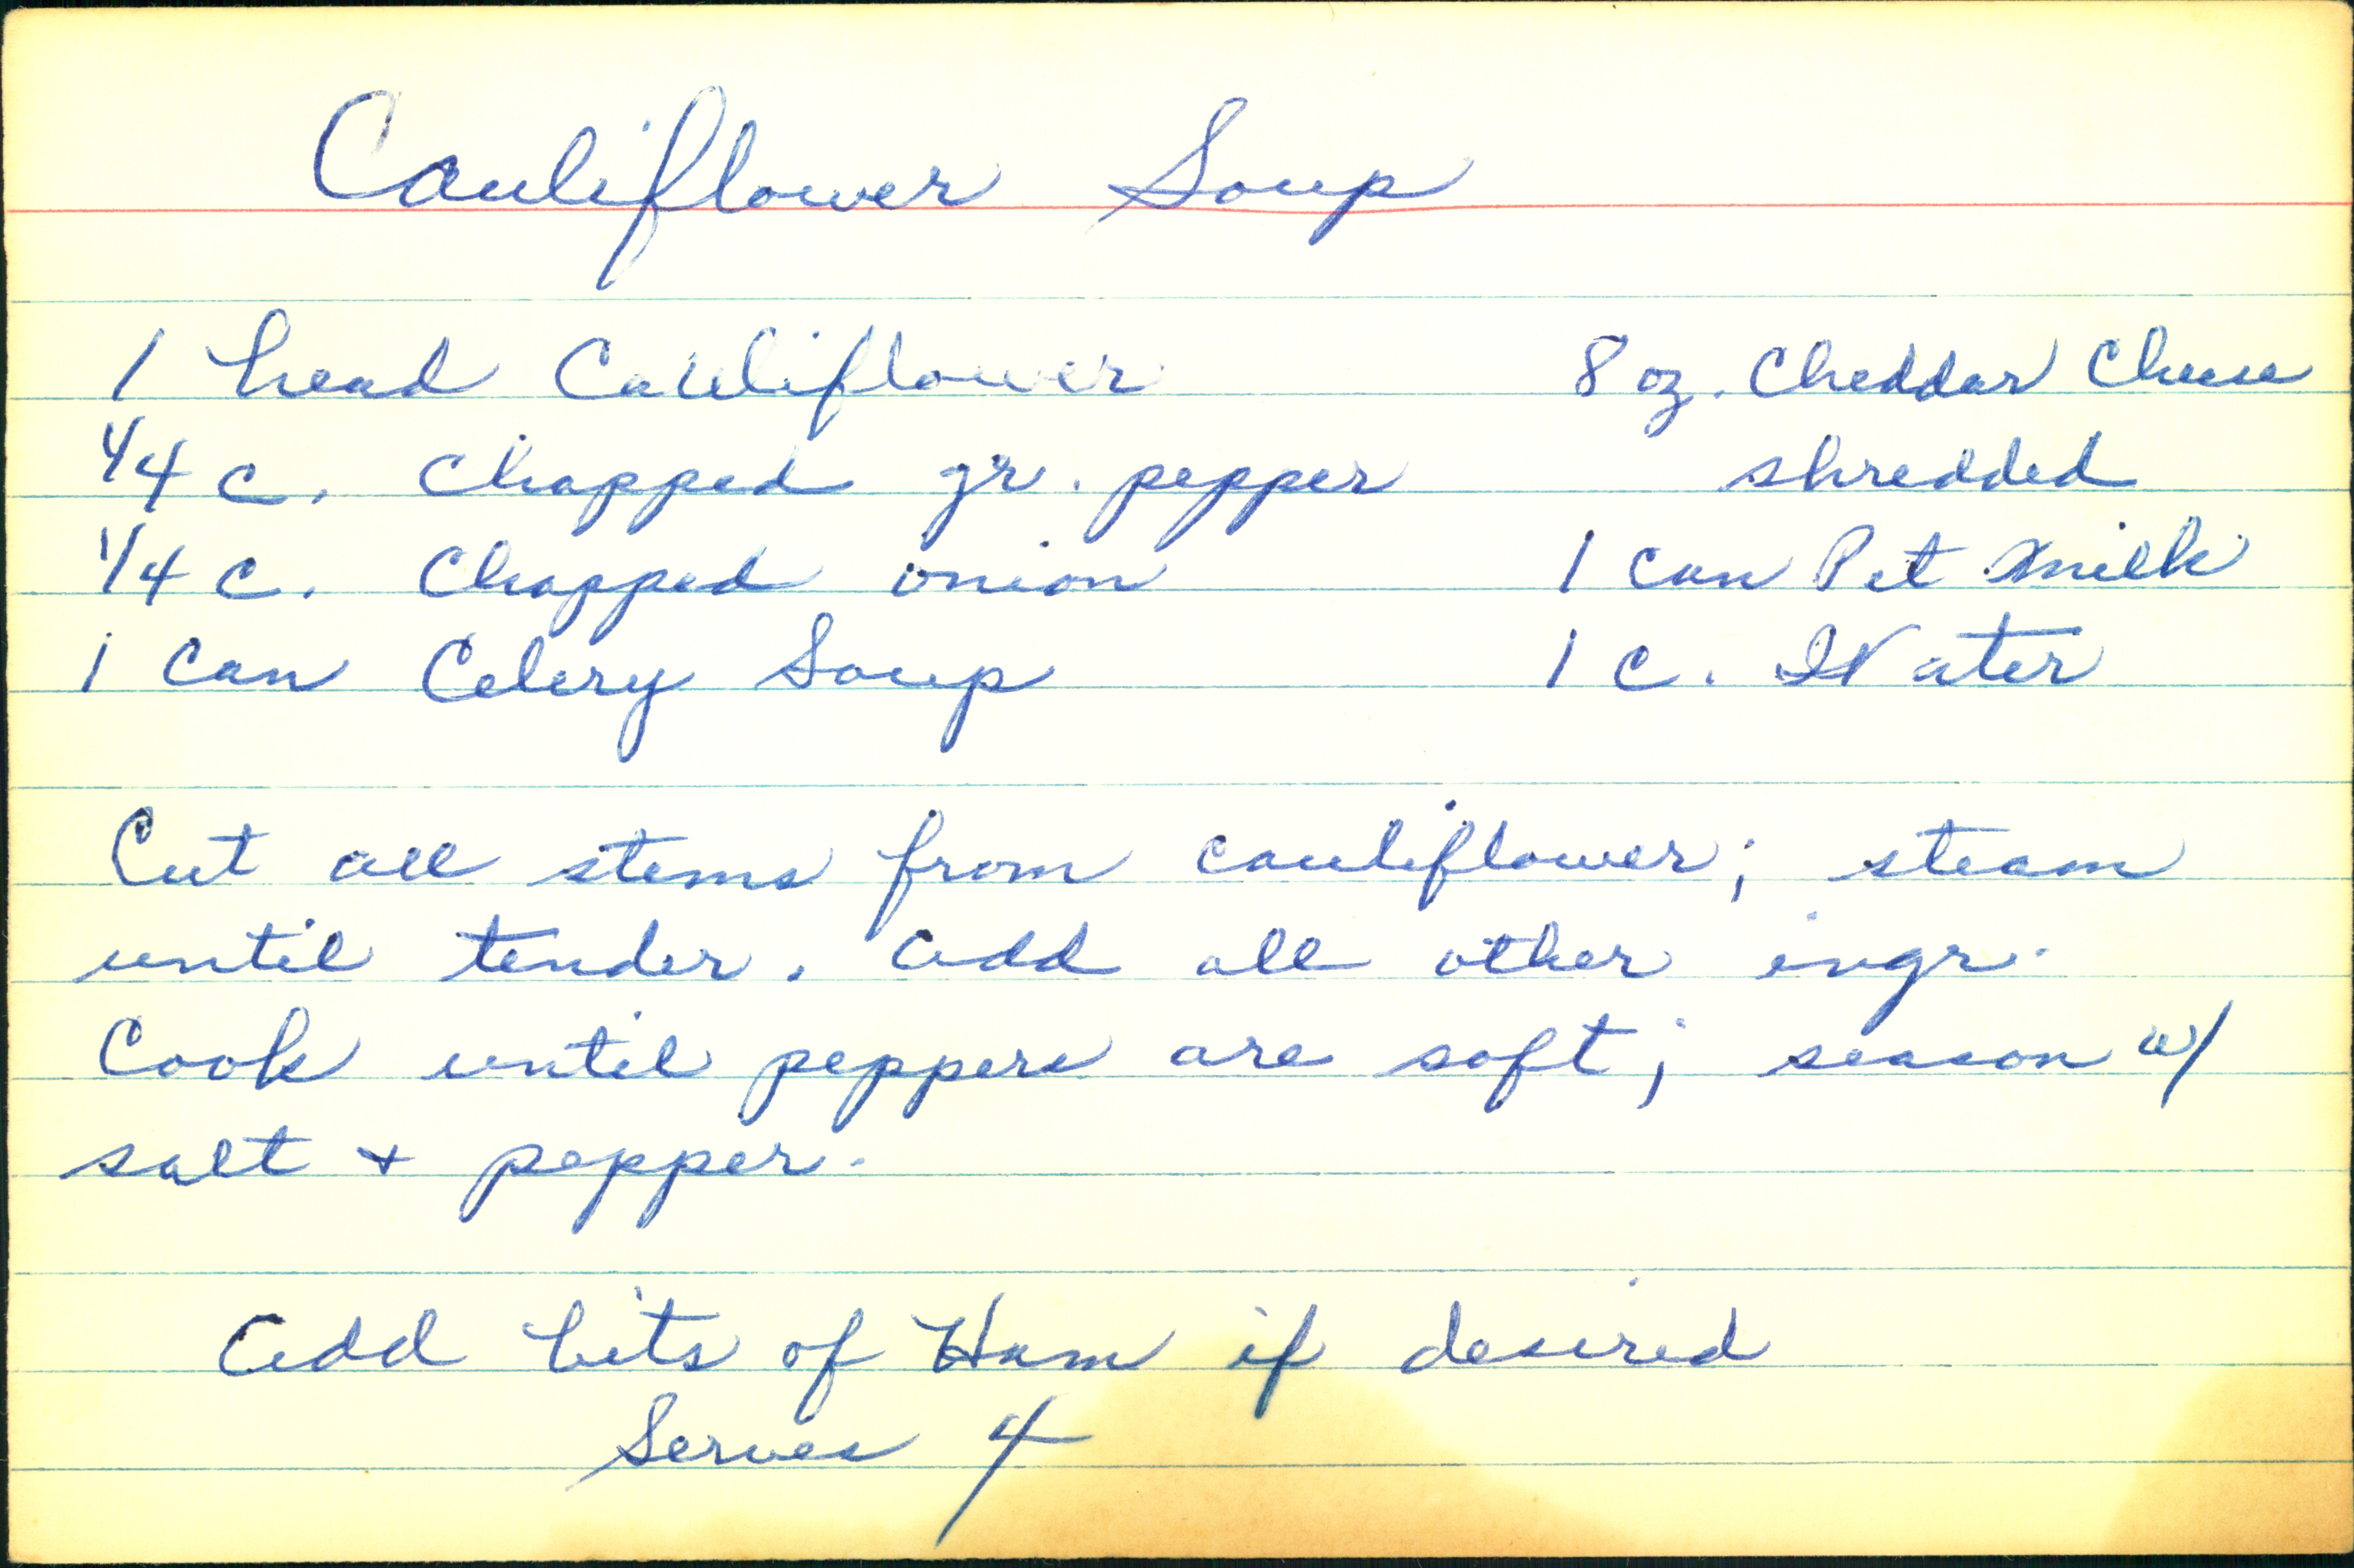 Cauliflower Soup
1 head Cauliflower
1/4 c. chopped gr. pepper
1/4 c. Chopped onion
1 can Celery Soup
8 oz. Cheddar Cheese
shredded
1 can Pet Milk
1 c. Water
Cut all stems from cauliflower; steam
until tender. Add all other ingr.
Cook until peppers are soft; season w/
salt + pepper.
Add bits of Ham if desired
Serves 4